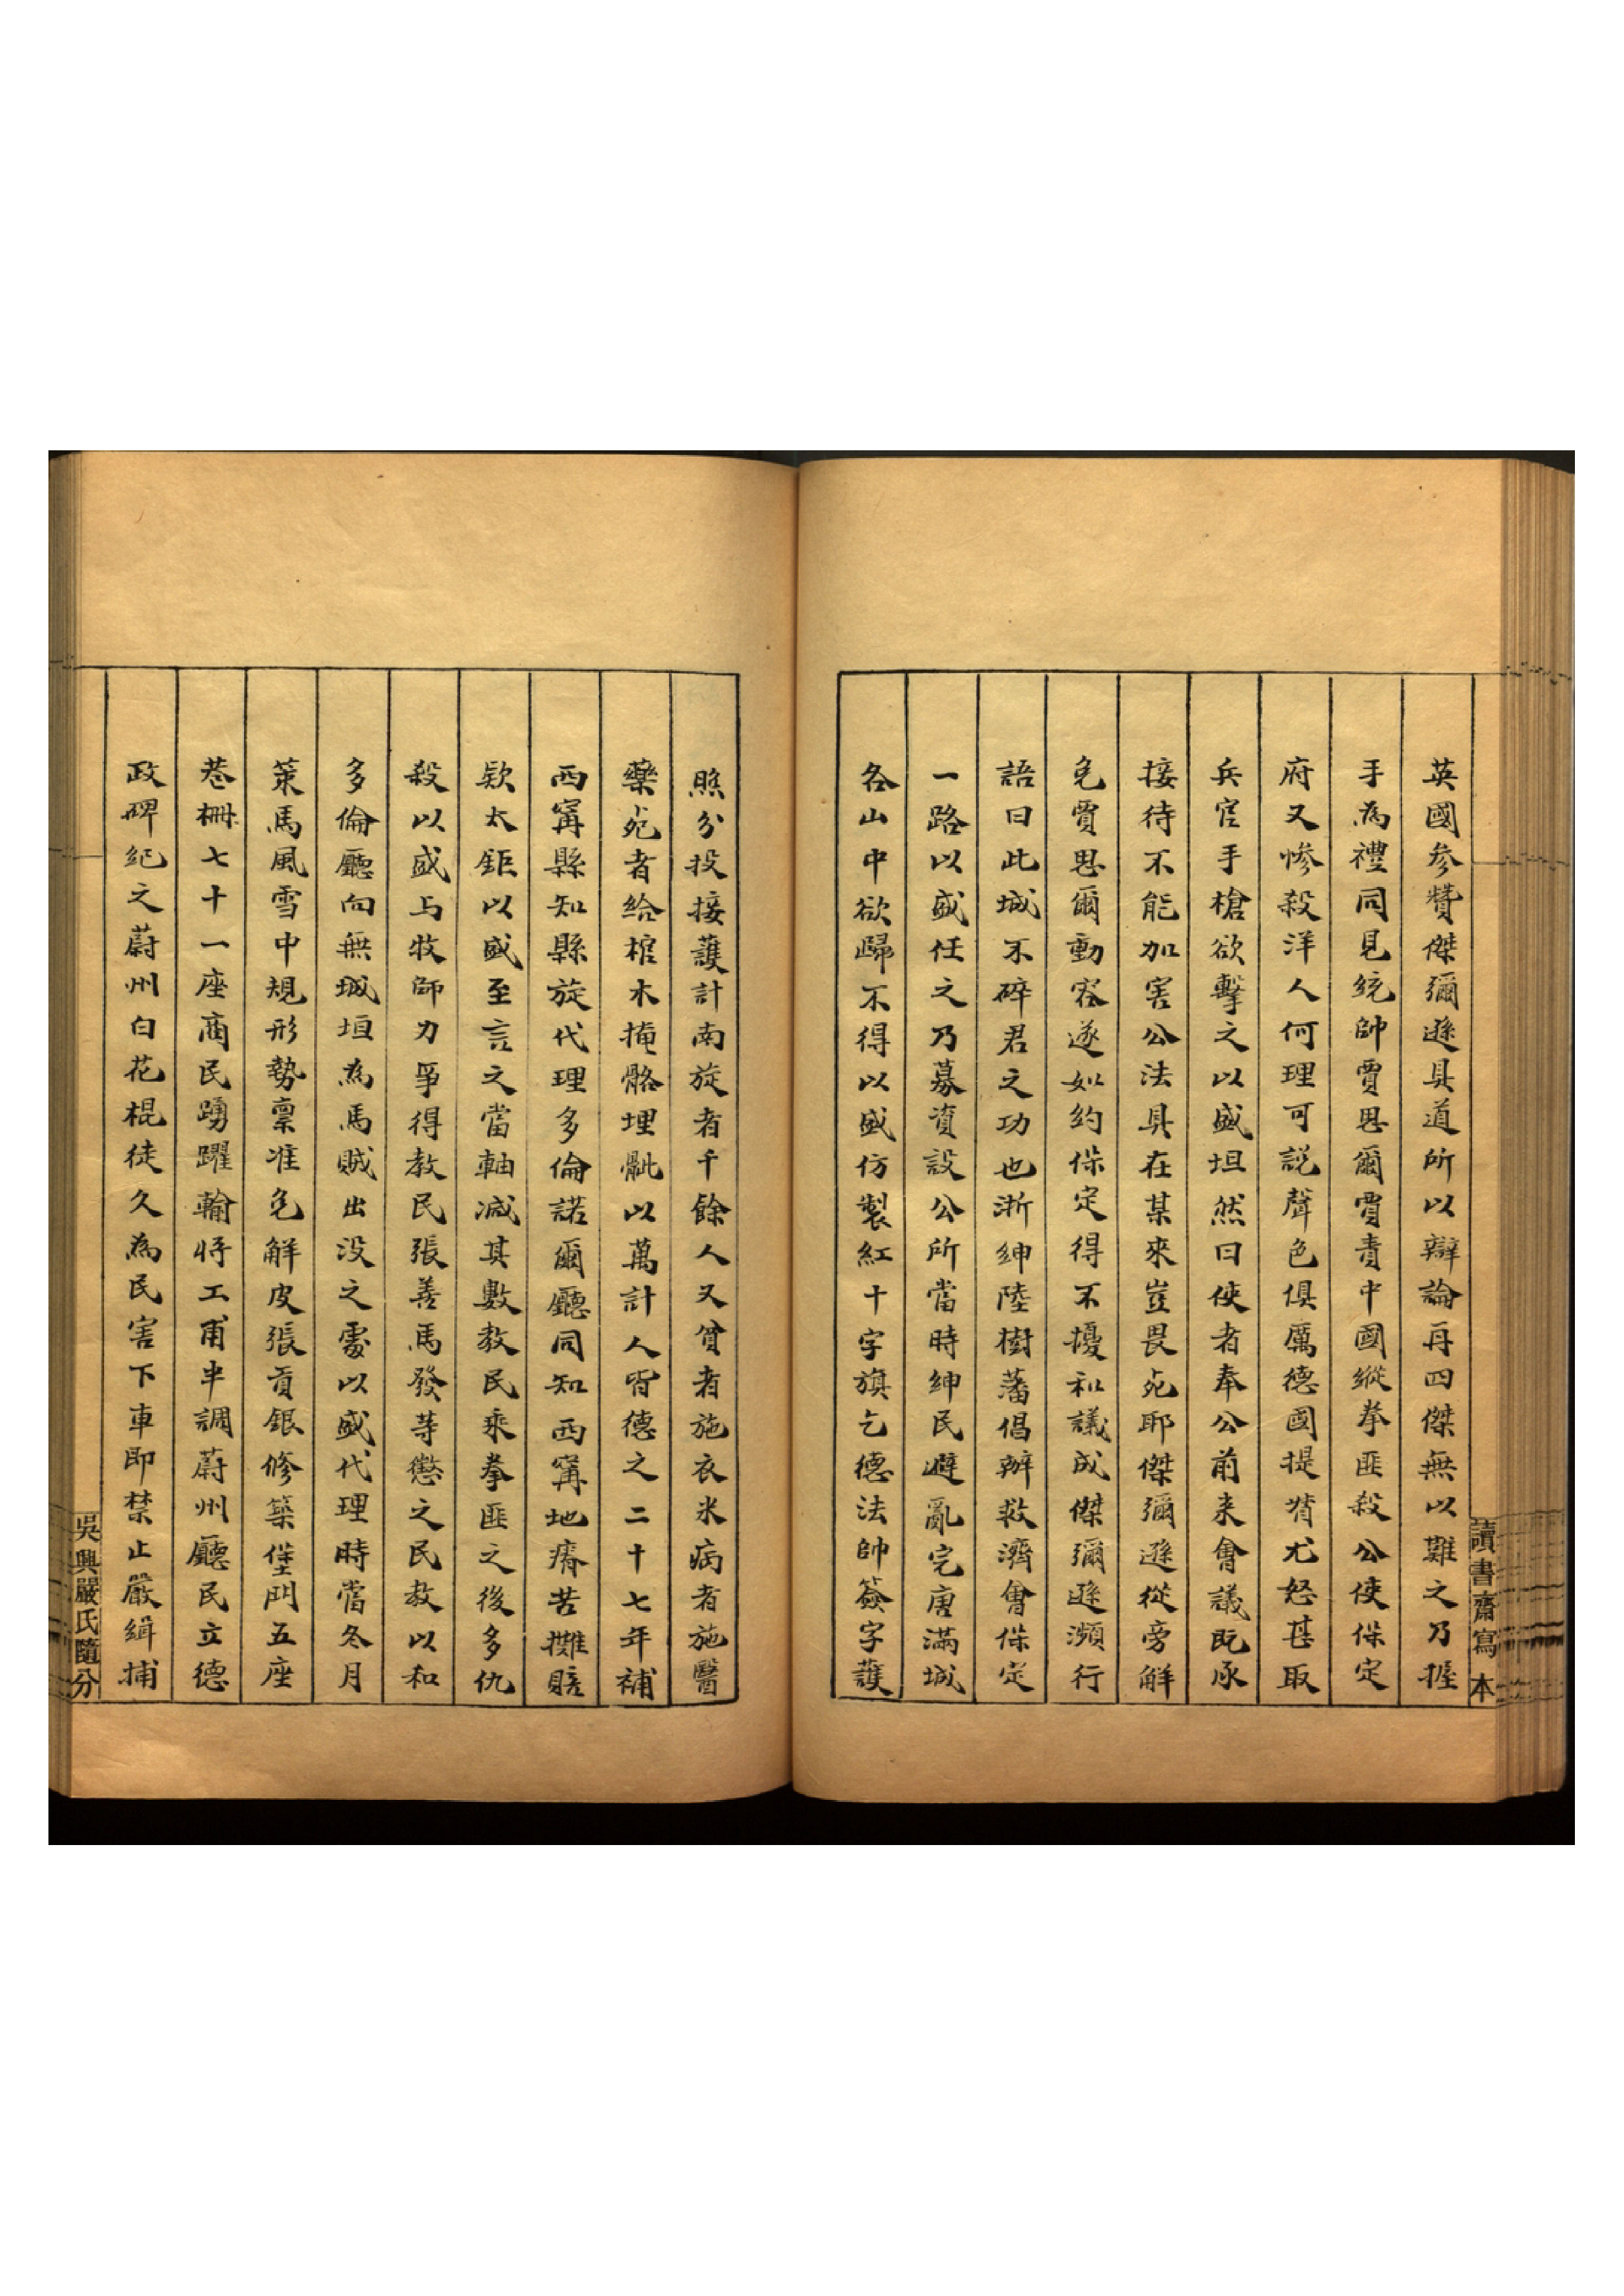 讀書齋寫本
英國参贊傑彌遜具道所以辯論再四傑無以難之乃握
手為禮同見統帥賈思爾賈責中國縱拳匪殺公使保定
府又惨殺洋人何理可説聲色俱厲德國提督尤怒甚取
兵官手槍欲擊之以盛坦然曰使者奉公前来會議既承
接待不能加害公法具在某來豈畏死耶傑彌遜從旁解
免賈思爾動容遂如約保定得不擾和議成傑彌遜瀕行
語曰此城不碎君之功也浙紳陸樹藩倡辦救濟會保定
一路以盛任之乃募資設公所當時紳民避亂完唐滿城
各山中欲歸不得以盛仿製紅十字旗乞德法帥簽字護
照分投接護計南旋者千餘人又貧者施衣米病者施醫
藥死者給棺木掩骼埋骴以萬計人皆德之二十七年補
西甯縣知縣旋代理多倫諾爾廳同知西甯地瘠苦攤賠
欵太鉅以盛至言之當軸减其數教民乘拳匪之後多仇
殺以盛与牧師力爭得教民張善馬發等懲之民教以和
多倫廳向無城垣為馬賊出没之處以盛代理時當冬月
策馬風雪中規形勢稟准免解皮張貢銀修築堡門五座
巷柵七十一座商民踴躍輸将工甫半調蔚州廳民立德
政碑紀之蔚州白花棍徒久為民害下車即禁止嚴緝捕
吳興嚴氏隨分